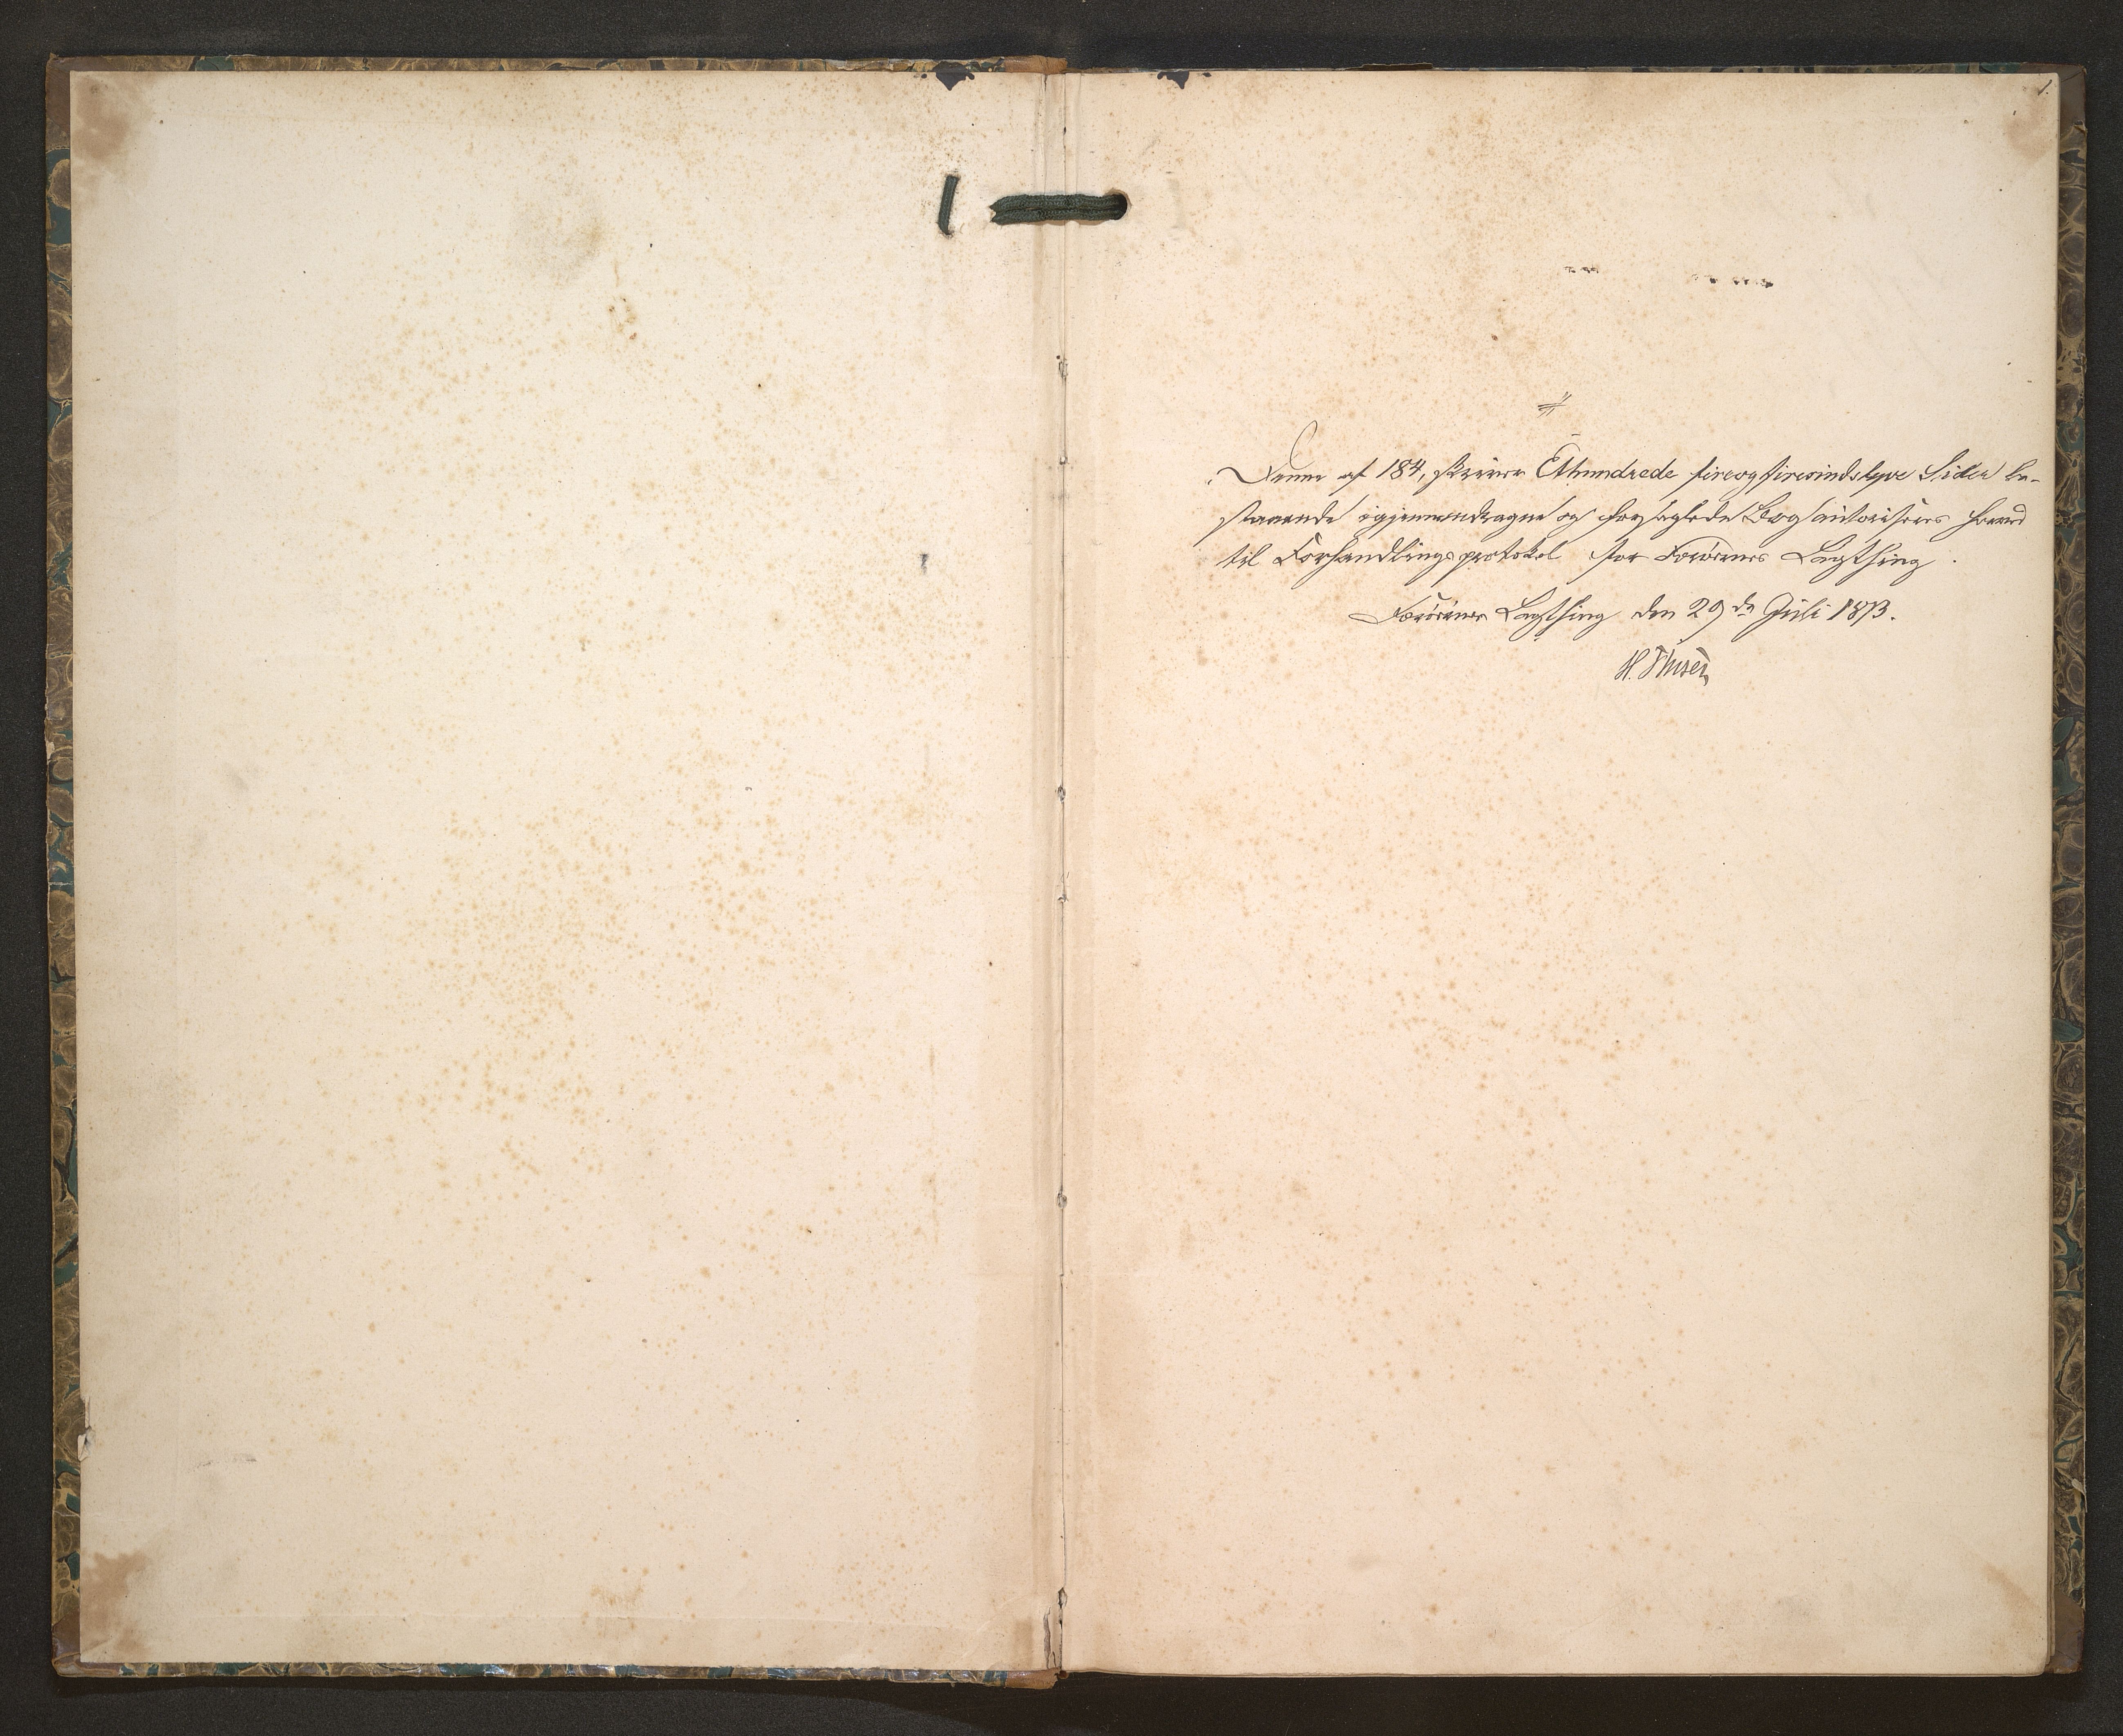 1.
Denne af 184, skriver Ethundrede fireogfirsindstyve Sider be-
staaende igjennemdragne og forseglede Bog autoriseres herved
til Forhandlingsprotokol for Færøernes Lagthing.
Færøernes Lagthing den 29de Juli 1873.